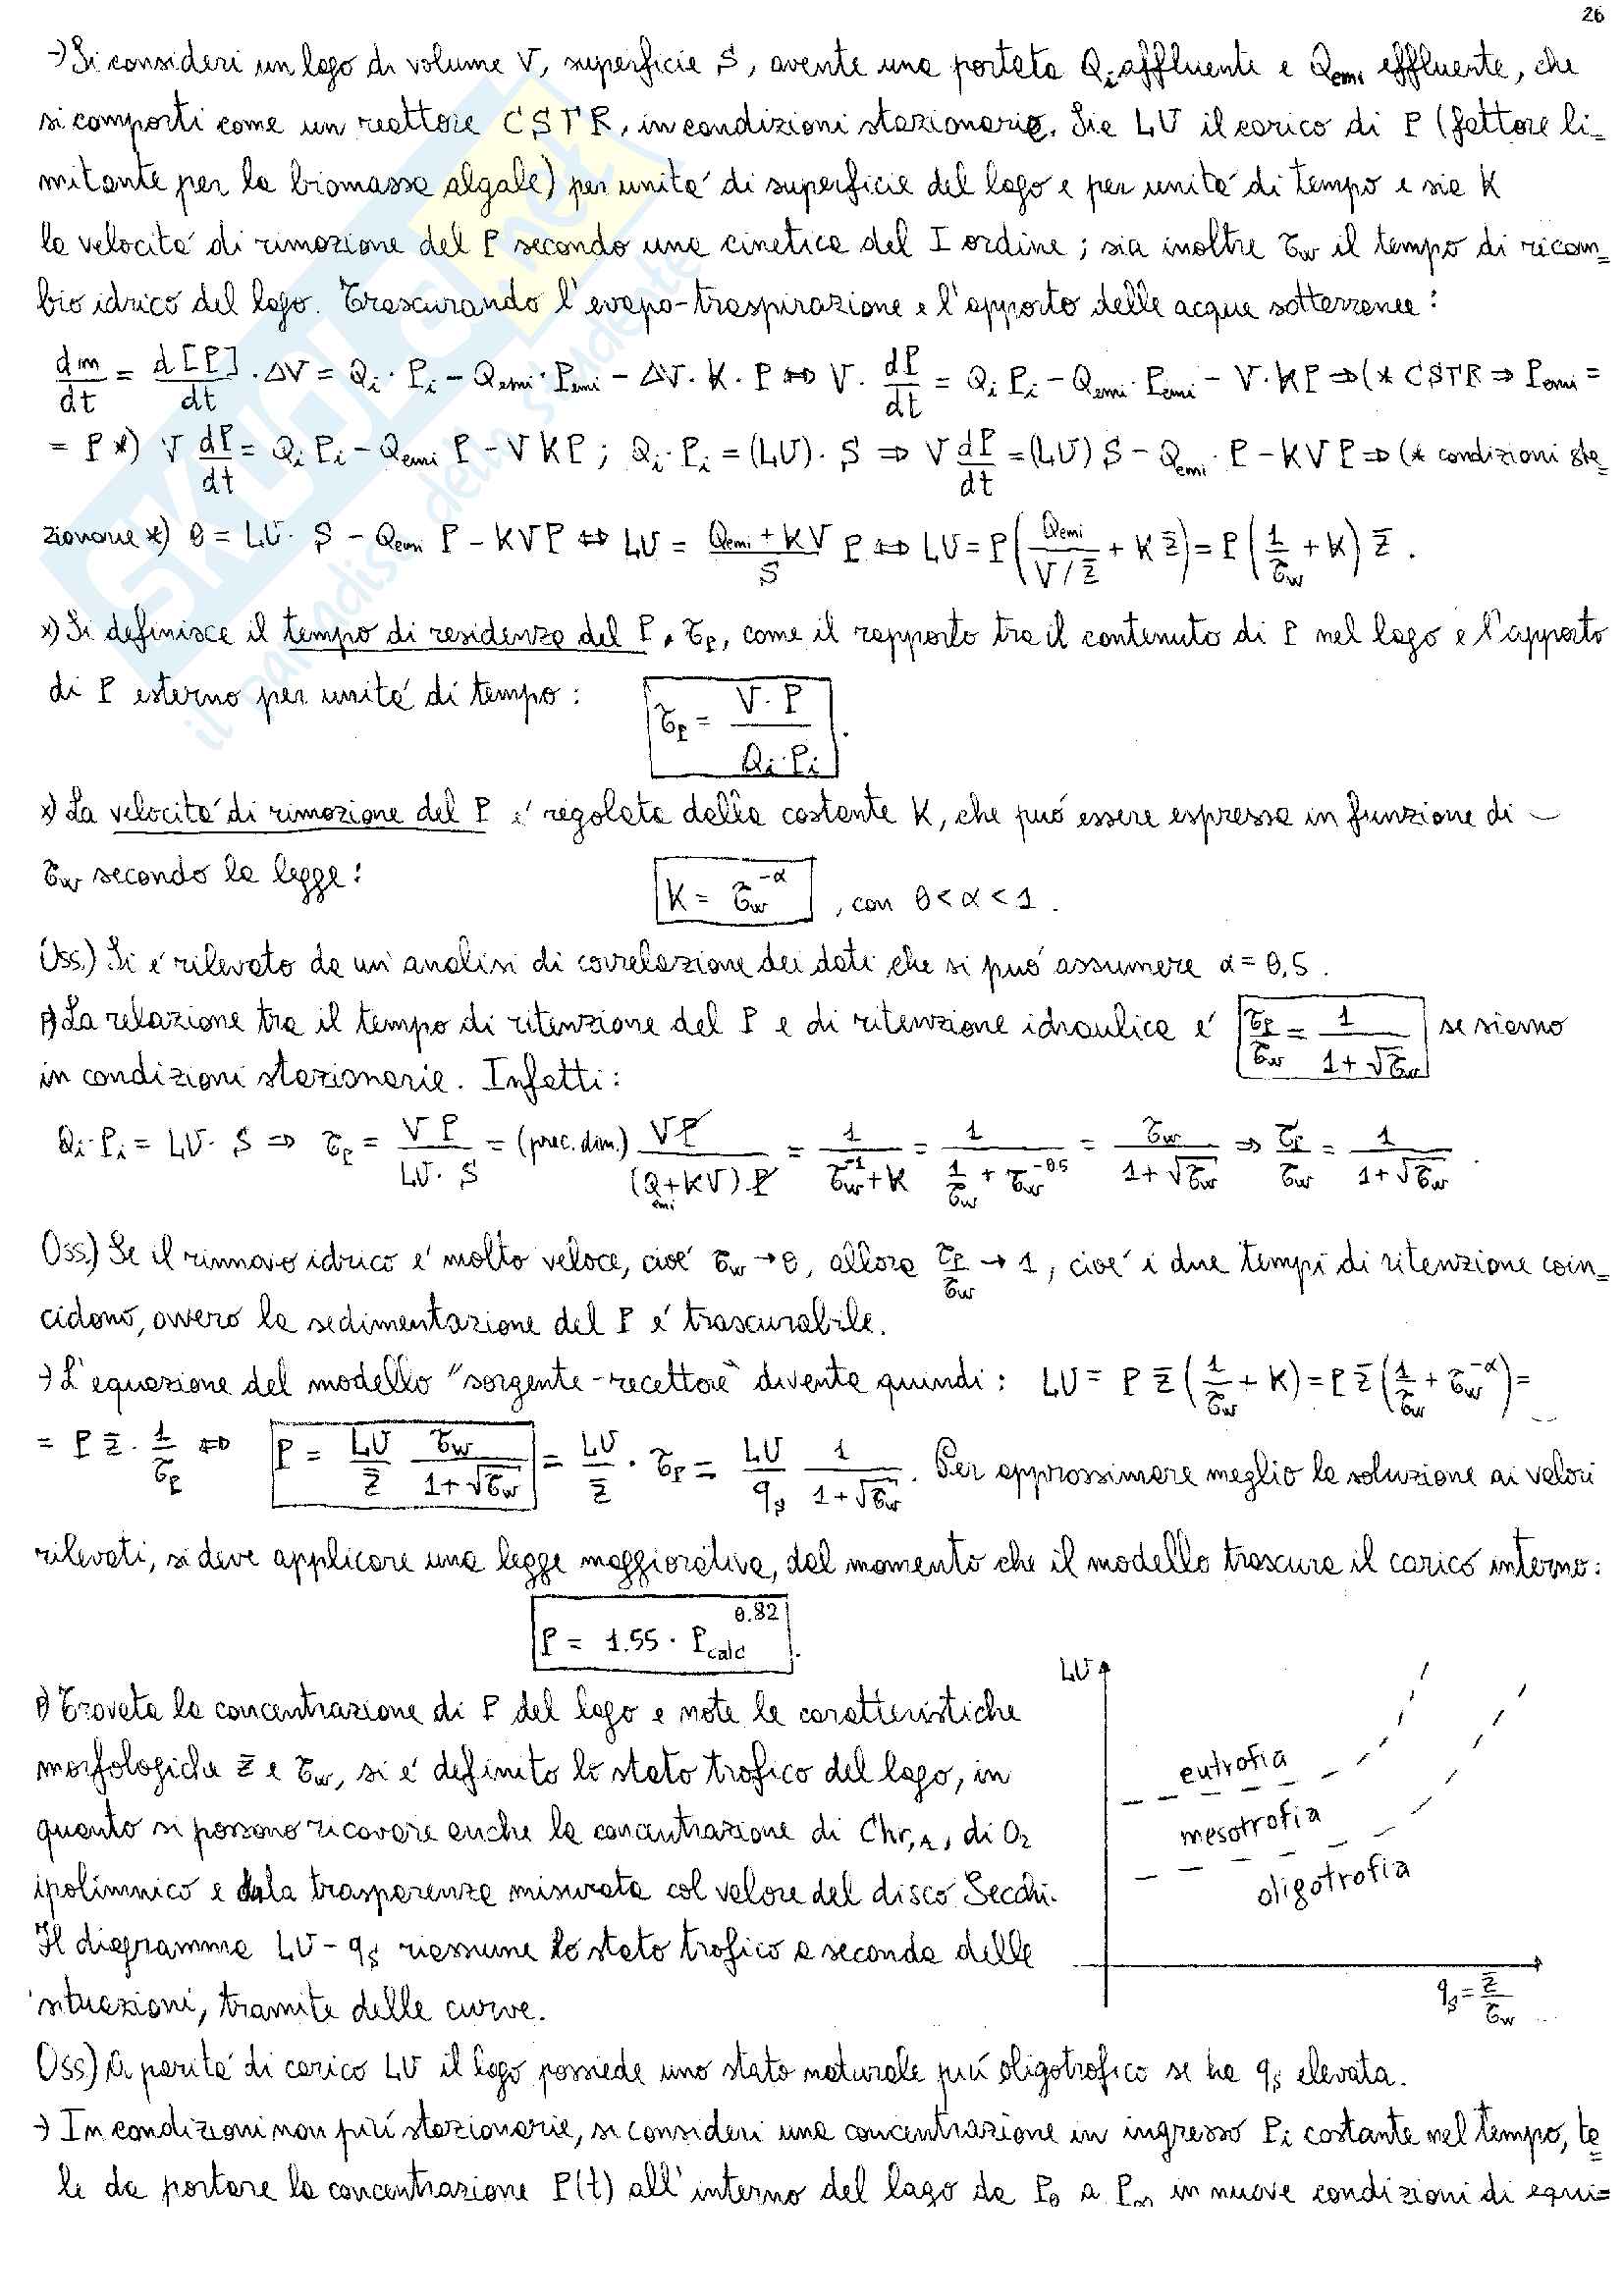 26
→) Si consideri un lago di volume V, superficie S, avente una portata Qi affluente e Qemi effluente, che
si comporti come un reattore CSTR, in condizioni stazionarie. Sia LU il carico di P (fattore li=
mitante per la biomassa algale) per unita' di superficie del lago e per unita' di tempo e sia K
la velocita' di rimozione del P secondo una cinetica del I ordine; sia inoltre τw il tempo di ricam=
bio idrico del lago. Trascurando l'evapo-traspirazione e l'apporto delle acque sotterranee:
dm/dt = d[P]/dt · ΔV = Qi · Pi - Qemi · Pemi - ΔV · K · P ⇔ V · dP/dt = Qi Pi - Qemi · Pemi - V · KP ⇒ (* CSTR ⇒ Pemi =
= P *) V dP/dt = Qi Pi - Qemi P - VKP ; Qi · Pi = (LU) · S ⇒ V dP/dt = (LU) S - Qemi · P - KVP ⇒ (* condizioni sta=
zionarie *) 0 = LU · S - Qemi P - KVP ⇔ LU = (Qemi + KV)/S P ⇔ LU = P (Qemi/(V/z̄) + K z̄) = P (1/τw + K) z̄ .
x) Si definisce il tempo di residenza del P, τP, come il rapporto tra il contenuto di P nel lago e l'apporto
di P esterno per unita' di tempo : τP = V · P / Qi · Pi .
x) La velocita' di rimozione del P e' regolata dalla costante K, che puo' essere espressa in funzione di
τw secondo la legge: K = τw^-α , con 0 < α < 1 .
Oss.) Si e' rilevato da un'analisi di correlazione dei dati che si puo' assumere α = 0,5 .
p) La relazione tra il tempo di ritenzione del P e di ritenzione idraulica e' τP/τw = 1/(1+√τw) se siamo
in condizioni stazionarie. Infatti:
Qi · Pi = LU · S ⇒ τP = VP/(LU · S) = (prec. dim.) VP/((Qemi + KV) P) = 1/(τw^-1 + K) = 1/(1/τw + τw^-0.5) = τw/(1+√τw) ⇒ τP/τw = 1/(1+√τw) .
Oss.) Se il rinnovo idrico e' molto veloce, cioe' τw → 0, allora τP/τw → 1, cioe' i due tempi di ritenzione coin=
cidono, ovvero la sedimentazione del P e' trascurabile.
→) L'equazione del modello "sorgente-recettore" diventa quindi: LU = P z̄ (1/τw + K) = P z̄ (1/τw + τw^-α) =
= P z̄ · 1/τP ⇔ P = LU/z̄ τw/(1+√τw) = LU/z̄ · τP = LU/qs 1/(1+√τw) . Per approssimare meglio la soluzione ai valori
rilevati, si deve applicare una legge maggiorativa, dal momento che il modello trascura il carico interno:
P = 1.55 · Pcalc^0.82 .
p) Trovata la concentrazione di P del lago e note le caratteristiche
morfologiche z̄ e τw, si e' definito lo stato trofico del lago, in
quanto si possono ricavare anche la concentrazione di Chr,A, di O2
ipolimnico e dela trasparenza misurata col valore del disco Secchi.
Il diagramma LU - qs riassume lo stato trofico a seconda delle
situazioni, tramite delle curve.
LU
eutrofia
mesotrofia
oligotrofia
qs = z̄/τw
Oss.) A parita' di carico LU il lago possiede uno stato naturale piu' oligotrofico se ha qs elevata.
→) In condizioni non piu' stazionarie, si consideri una concentrazione in ingresso Pi costante nel tempo, ta=
le da portare la concentrazione P(t) all'interno del lago da P0 a P∞ in nuove condizioni di equi=